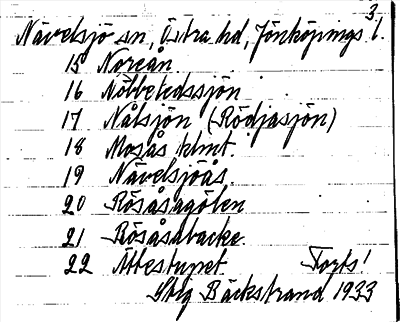 3.
Nävelsjö sn, Östra hd, Jönköpings l.
15 Noreån
16 Nöbbeledssjön
17 Nålsjön (Rödjasjön)
18 Mosås hlmt.
19 Nävelsjöås
20 Rösåsagölen
21 Rösåsabacke
22 Ättestupet Forts!
Stig Bäckstrand 1933